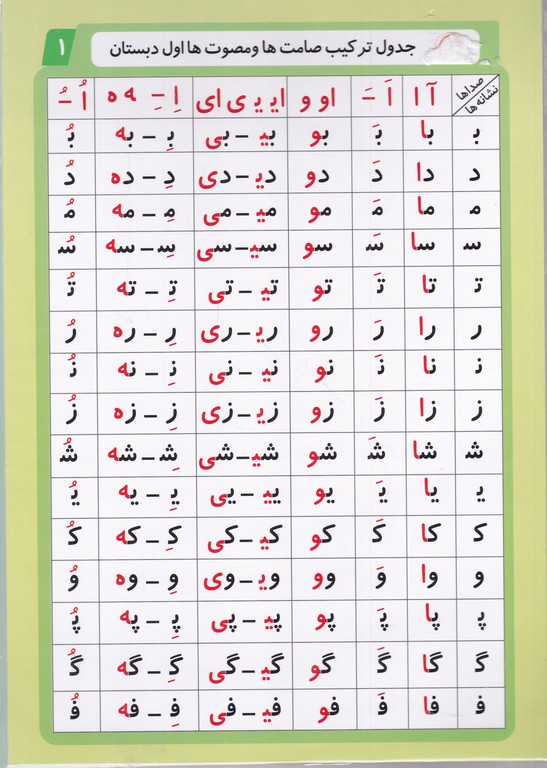 ۱
جدول ترکیب صامت ها و مصوت ها اول دبستان
صداها نشانه‌ها آ ا اَ ـَ او و ایـ یـ ی ای اِ ـِ ـه ه اُ ـُ
بـ با بَـ بو بیـ – بی بِـ – به بُـ
د دا دَ دو دیـ – دی دِ – ده دُ
مـ ما مَـ مو میـ – می مِـ – مه مُـ
سـ سا سَـ سو سیـ – سی سِـ – سه سُـ
تـ تا تَـ تو تیـ – تی تِـ – ته تُـ
ر را رَ رو ریـ – ری رِ – ره رُ
نـ نا نَـ نو نیـ – نی نِـ – نه نُـ
ز زا زَ زو زیـ – زی زِ – زه زُ
شـ شا شَـ شو شیـ – شی شِـ – شه شُـ
یـ یا یَـ یو ییـ – یی یِـ – یه یُـ
کـ کا کَـ کو کیـ – کی کِـ – که کُـ
و وا وَ وو ویـ – وی وِ – وه وُ
پـ پا پَـ پو پیـ – پی پِـ – په پُـ
گـ گا گَـ گو گیـ – گی گِـ – گه گُـ
فـ فا فَـ فو فیـ – فی فِـ – فه فُـ